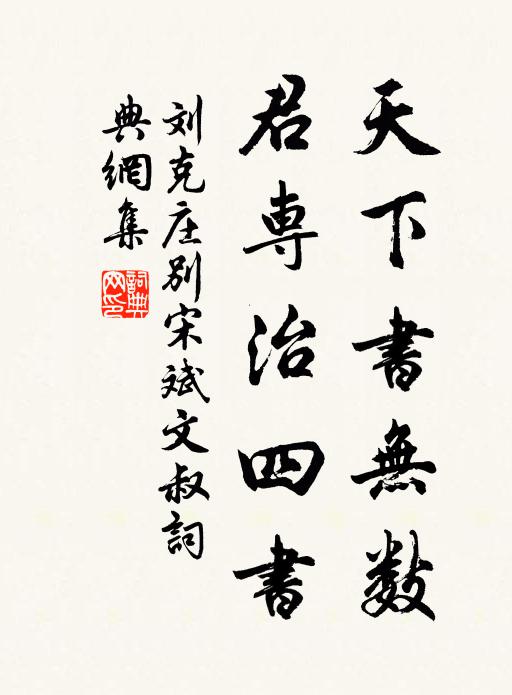 天下書無数
君専治四書
刘克庄別宋斌文叔詞
典網集
詞典網印